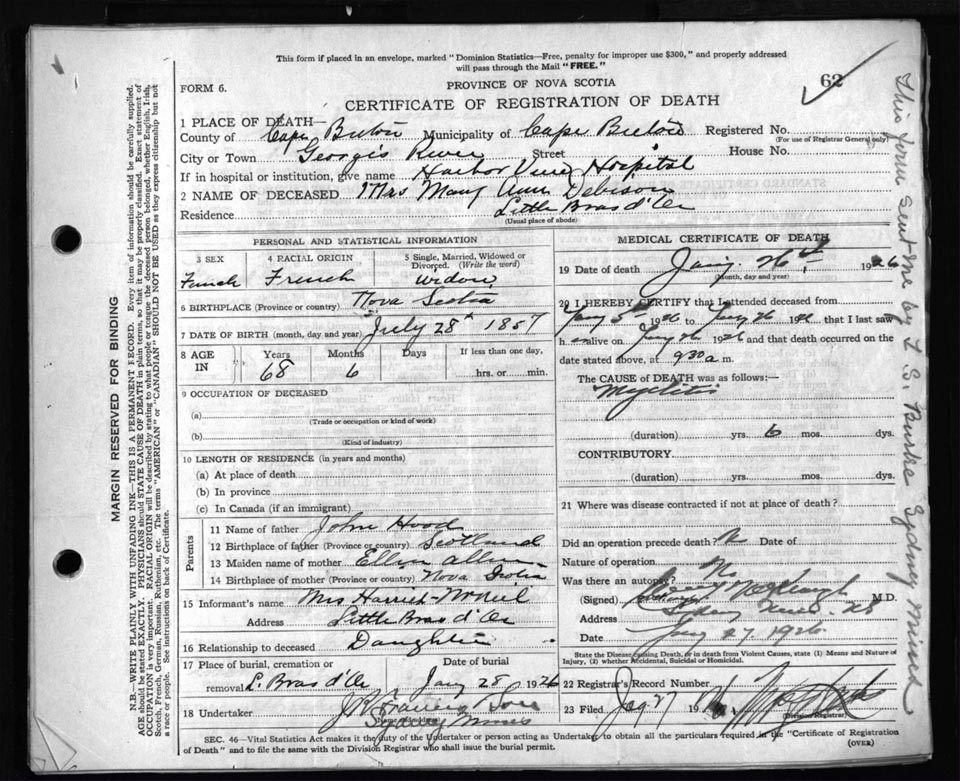 This form if placed in an envelope, marked "Dominion Statistics—Free, penalty for improper use $300," and properly addressed
will pass through the Mail "FREE."
62
FORM 6.
PROVINCE OF NOVA SCOTIA
CERTIFICATE OF REGISTRATION OF DEATH
1 PLACE OF DEATH—
County of Cape Breton Municipality of Cape Breton Registered No.
(For use of Registrar General only)
City or Town Georges River Street House No.
If in hospital or institution, give name Harbor View Hospital
2 NAME OF DECEASED Mrs Mary Ann Debison
Residence Little Bras d'Or
(Usual place of abode)
PERSONAL AND STATISTICAL INFORMATION
3 SEX 4 RACIAL ORIGIN 5 Single, Married, Widowed or Divorced. (Write the word)
Female French Widow
6 BIRTHPLACE (Province or country) Nova Scotia
7 DATE OF BIRTH (month, day and year) July 28th 1857
8 AGE IN Years Months Days If less than one day,
68 6 hrs. or min.
9 OCCUPATION OF DECEASED
(a)
(Trade or occupation or kind of work)
(b)
(Kind of industry)
10 LENGTH OF RESIDENCE (in years and months)
(a) At place of death
(b) In province
(c) In Canada (if an immigrant)
Parents
11 Name of father John Hood
12 Birthplace of father (Province or country) Scotland
13 Maiden name of mother Ellen Allen
14 Birthplace of mother (Province or country) Nova Scotia
15 Informant's name Mrs Harriet McNeil
Address Little Bras d'Or
16 Relationship to deceased Daughter
17 Place of burial, cremation or removal L. Bras d'Or Date of burial Jany 28 1926
18 Undertaker Sons
Sydney Mines
MEDICAL CERTIFICATE OF DEATH
19 Date of death Jany 26th 1926
(Month, day and year)
20 I HEREBY CERTIFY that I attended deceased from
Jany 5th 1926 to Jany 26 1926 that I last saw
h er alive on Jany 26 1926 and that death occurred on the
date stated above, at 9.30 a m.
The CAUSE of DEATH was as follows:—
Myelitis
(duration) yrs. 6 mos. dys.
CONTRIBUTORY
(duration) yrs. mos. dys.
21 Where was disease contracted if not at place of death?
Did an operation precede death? N Date of
Nature of operation
Was there an autopsy? No
(Signed) M.D.
Address Sydney Mines
Date Jany 27 1926
State the Disease causing Death, or in death from Violent Causes, state (1) Means and Nature of
Injury, (2) whether Accidental, Suicidal or Homicidal.
22 Registrar's Record Number
23 Filed Jany 27 1926
(Division Registrar)
SEC. 46—Vital Statistics Act makes it the duty of the Undertaker or person acting as Undertaker to obtain all the particulars required in the "Certificate of Registration
of Death" and to file the same with the Division Registrar who shall issue the burial permit.
(OVER)
MARGIN RESERVED FOR BINDING
N.B.—WRITE PLAINLY WITH UNFADING INK—THIS IS A PERMANENT RECORD. Every item of information should be carefully supplied.
AGE should be stated EXACTLY. PHYSICIANS should STATE CAUSE OF DEATH in plain terms, so that it may be properly classified. Exact statement of
OCCUPATION is very important. RACIAL ORIGIN will be described by stating to what people or tongue the deceased person belonged, whether English, Irish,
Scotch, French, German, Russian, Ruthenian, etc. The terms "AMERICAN" or "CANADIAN" SHOULD NOT BE USED as they express citizenship but not
a race or people. See instructions on back of Certificate.
This form sent me by L. S. Burke Sydney Mines